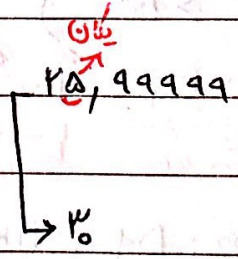 یکان
۲۵, ۹۹۹۹۹
۳۰